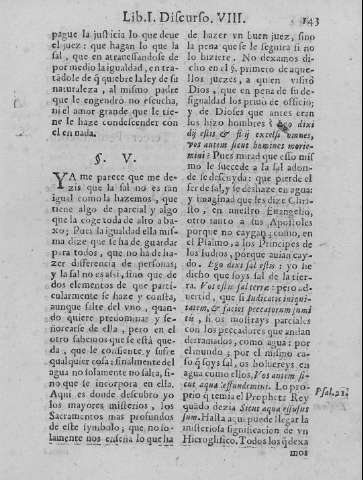 Lib. I. Discurso. VIII.
143
pague la justicia lo que deue
el juez: que hagan lo que la
sal, que en atrauessandose de
por medio la igualdad, en tra-
tãdole de q̃ quiebre la ley de su
naturaleza, al mismo padre
que le engendrò no escucha,
ni el amor grande que le tie-
ne le haze condescender con
el en nada.
§. V.
YA me parece que me de-
zis que la sal no es tan
igual como la hazemos, que
tiene algo de parcial y algo
que la coge toda de alto a ba-
xo; Pues la igualdad ella mis-
ma dize que se ha de guardar
para todos, que no ha de ha-
zer diferencia de personas,
y la sal no es assi, sino que de
dos elementos de que parti-
cularmente se haze y consta,
aunque salte del vno, quan-
do quiere predominar y se-
ñorearse de ella, pero en el
otro sabemos que se està que-
da, que le consiente, y sufre
qualquier cosa: finalmente del
agua no solamente no salta, si-
no que se incorpora en ella.
Aqui es donde descubro yo
los mayores misterios, los
Sacramentos mas profundos
de este symbolo; que no so-
lamente nos enseña lo que ha
de hazer vn buen juez, sino
la pena que se le seguira si no
lo hiziere. No dexamos di-
cho en el §. primero de aque-
llos juezes, a quien visitó
Dios, que en pena de su de-
sigualdad los priuò de oficio;
y de Dioses que antes eran
los hizo hombres: Ego dixi
dij estis & filij excelsi omnes,
vos autem sicut homines morie-
mini: Pues mirad que esso mis-
mo le succede a la sal adon-
de se descuyda: que pierde el
ser de sal, y se deshaze en agua:
y imaginad que les dize Chri-
sto, en nuestro Euangelio,
otro tanto a sus Apostoles
porque no caygan; como, en
el Psalmo, a los Principes de
los Iudios, porque auian cay-
do. Ego dixi sal estis: yo he
dicho que soys sal de la tie-
rra. Vos estis sal terræ: pero ad-
uertid, que si Iudicatis iniqui-
tatem, & facies peccatorum sumi-
tis, si os mostrays parciales
con los peccadores que andan
derramados, como agua: por
el mundo; por el mismo ca-
so q̃ soys sal, os boluereys en
agua como ellos, Vos autem si-
cut aqua effundemini. Lo pro-
prio q̃ temia el Propheta Rey
quãdo dezia Sicut aqua effusus
sum. Hasta aqui puede llegar la
misteriosa significacion de vn
Hieroglifico. Todos los q̃ dexa
Psal. 21.
mos